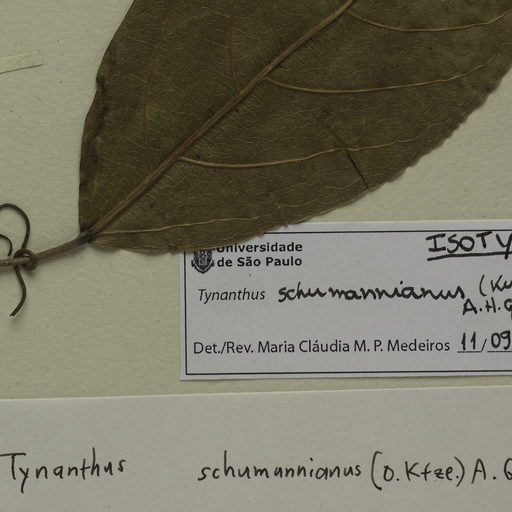 Universidade
de São Paulo
ISOTY
Tynanthus schumannianus (Ku
A.H.G
Det./Rev. Maria Cláudia M. P. Medeiros 11/09
Tynanthus schumannianus (O. Ktze.) A. G